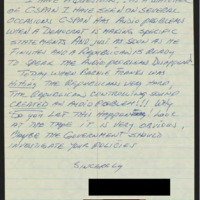 of C-SPAN I have seen on several
occasions C-SPAN has audio problems
when a Democrat is making specific
statements. And just as soon as he
finishes and a Republican is ready
to speak the audio problems disappear.
Today when Barney Frank was
hitting the Republicans very hard,
the Republican controlling sound
created an audio problem!! Why
do you let this happen? Look
at the tape it is very obvious,
maybe the Government should
investigate your policies
Sincerely